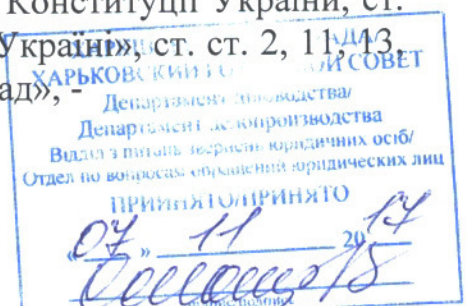 Конституції України, ст.
Україні», ст. ст. 2, 11, 13,
ад», -
ХАРЬКОВСКИЙ СОВЕТ
Департамент діловодства/
Департамент делопроизводства
Відділ з питань звернень юридичних осіб/
Отдел по вопросам обращений юридических лиц
ПРИЙНЯТО/ПРИНЯТО
«07» 11 2017